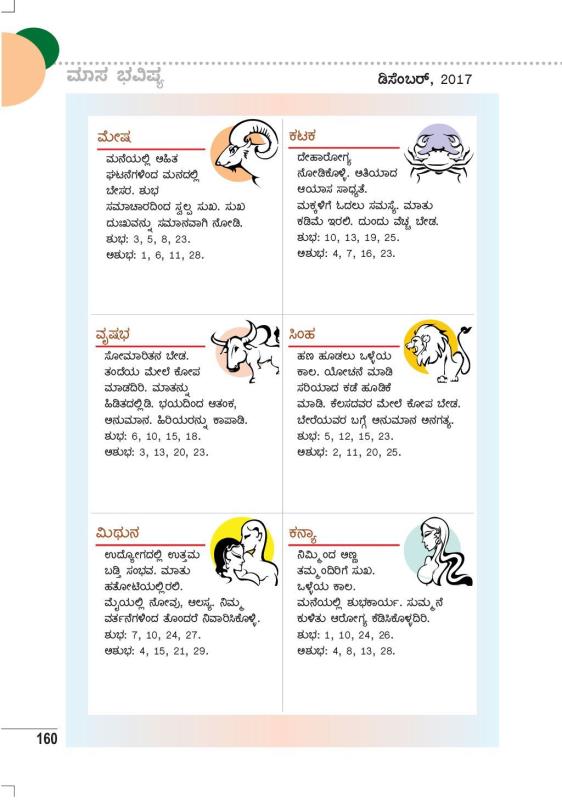 ಮಾಸ ಭವಿಷ್ಯ
ಡಿಸೆಂಬರ್, 2017
ಮೇಷ
ಮನೆಯಲ್ಲಿ ಅಹಿತ
ಘಟನೆಗಳಿಂದ ಮನದಲ್ಲಿ
ಬೇಸರ. ಶುಭ
ಸಮಾಚಾರದಿಂದ ಸ್ವಲ್ಪ ಸುಖ. ಸುಖ
ದುಃಖವನ್ನು ಸಮಾನವಾಗಿ ನೋಡಿ.
ಶುಭ: 3, 5, 8, 23.
ಅಶುಭ: 1, 6, 11, 28.
ಕಟಕ
ದೇಹಾರೋಗ್ಯ
ನೋಡಿಕೊಳ್ಳಿ. ಅತಿಯಾದ
ಆಯಾಸ ಸಾಧ್ಯತೆ.
ಮಕ್ಕಳಿಗೆ ಓದಲು ಸಮಸ್ಯೆ. ಮಾತು
ಕಡಿಮೆ ಇರಲಿ. ದುಂದು ವೆಚ್ಚ ಬೇಡ.
ಶುಭ: 10, 13, 19, 25.
ಅಶುಭ: 4, 7, 16, 23.
ವೃಷಭ
ಸೋಮಾರಿತನ ಬೇಡ.
ತಂದೆಯ ಮೇಲೆ ಕೋಪ
ಮಾಡದಿರಿ. ಮಾತನ್ನು
ಹಿಡಿತದಲ್ಲಿಡಿ. ಭಯದಿಂದ ಆತಂಕ,
ಅನುಮಾನ. ಹಿರಿಯರನ್ನು ಕಾಪಾಡಿ.
ಶುಭ: 6, 10, 15, 18.
ಅಶುಭ: 3, 13, 20, 23.
ಸಿಂಹ
ಹಣ ಹೂಡಲು ಒಳ್ಳೆಯ
ಕಾಲ. ಯೋಚನೆ ಮಾಡಿ
ಸರಿಯಾದ ಕಡೆ ಹೂಡಿಕೆ
ಮಾಡಿ. ಕೆಲಸದವರ ಮೇಲೆ ಕೋಪ ಬೇಡ.
ಬೇರೆಯವರ ಬಗ್ಗೆ ಅನುಮಾನ ಅನಗತ್ಯ.
ಶುಭ: 5, 12, 15, 23.
ಅಶುಭ: 2, 11, 20, 25.
ಮಿಥುನ
ಉದ್ಯೋಗದಲ್ಲಿ ಉತ್ತಮ
ಬಡ್ತಿ ಸಂಭವ. ಮಾತು
ಹತೋಟಿಯಲ್ಲಿರಲಿ.
ಮೈಯಲ್ಲಿ ನೋವು, ಆಲಸ್ಯ. ನಿಮ್ಮ
ವರ್ತನೆಗಳಿಂದ ತೊಂದರೆ ನಿವಾರಿಸಿಕೊಳ್ಳಿ.
ಶುಭ: 7, 10, 24, 27.
ಅಶುಭ: 4, 15, 21, 29.
ಕನ್ಯಾ
ನಿಮ್ಮಿಂದ ಅಣ್ಣ
ತಮ್ಮಂದಿರಿಗೆ ಸುಖ.
ಒಳ್ಳೆಯ ಕಾಲ.
ಮನೆಯಲ್ಲಿ ಶುಭಕಾರ್ಯ. ಸುಮ್ಮನೆ
ಕುಳಿತು ಆರೋಗ್ಯ ಕೆಡಿಸಿಕೊಳ್ಳದಿರಿ.
ಶುಭ: 1, 10, 24, 26.
ಅಶುಭ: 4, 8, 13, 28.
160